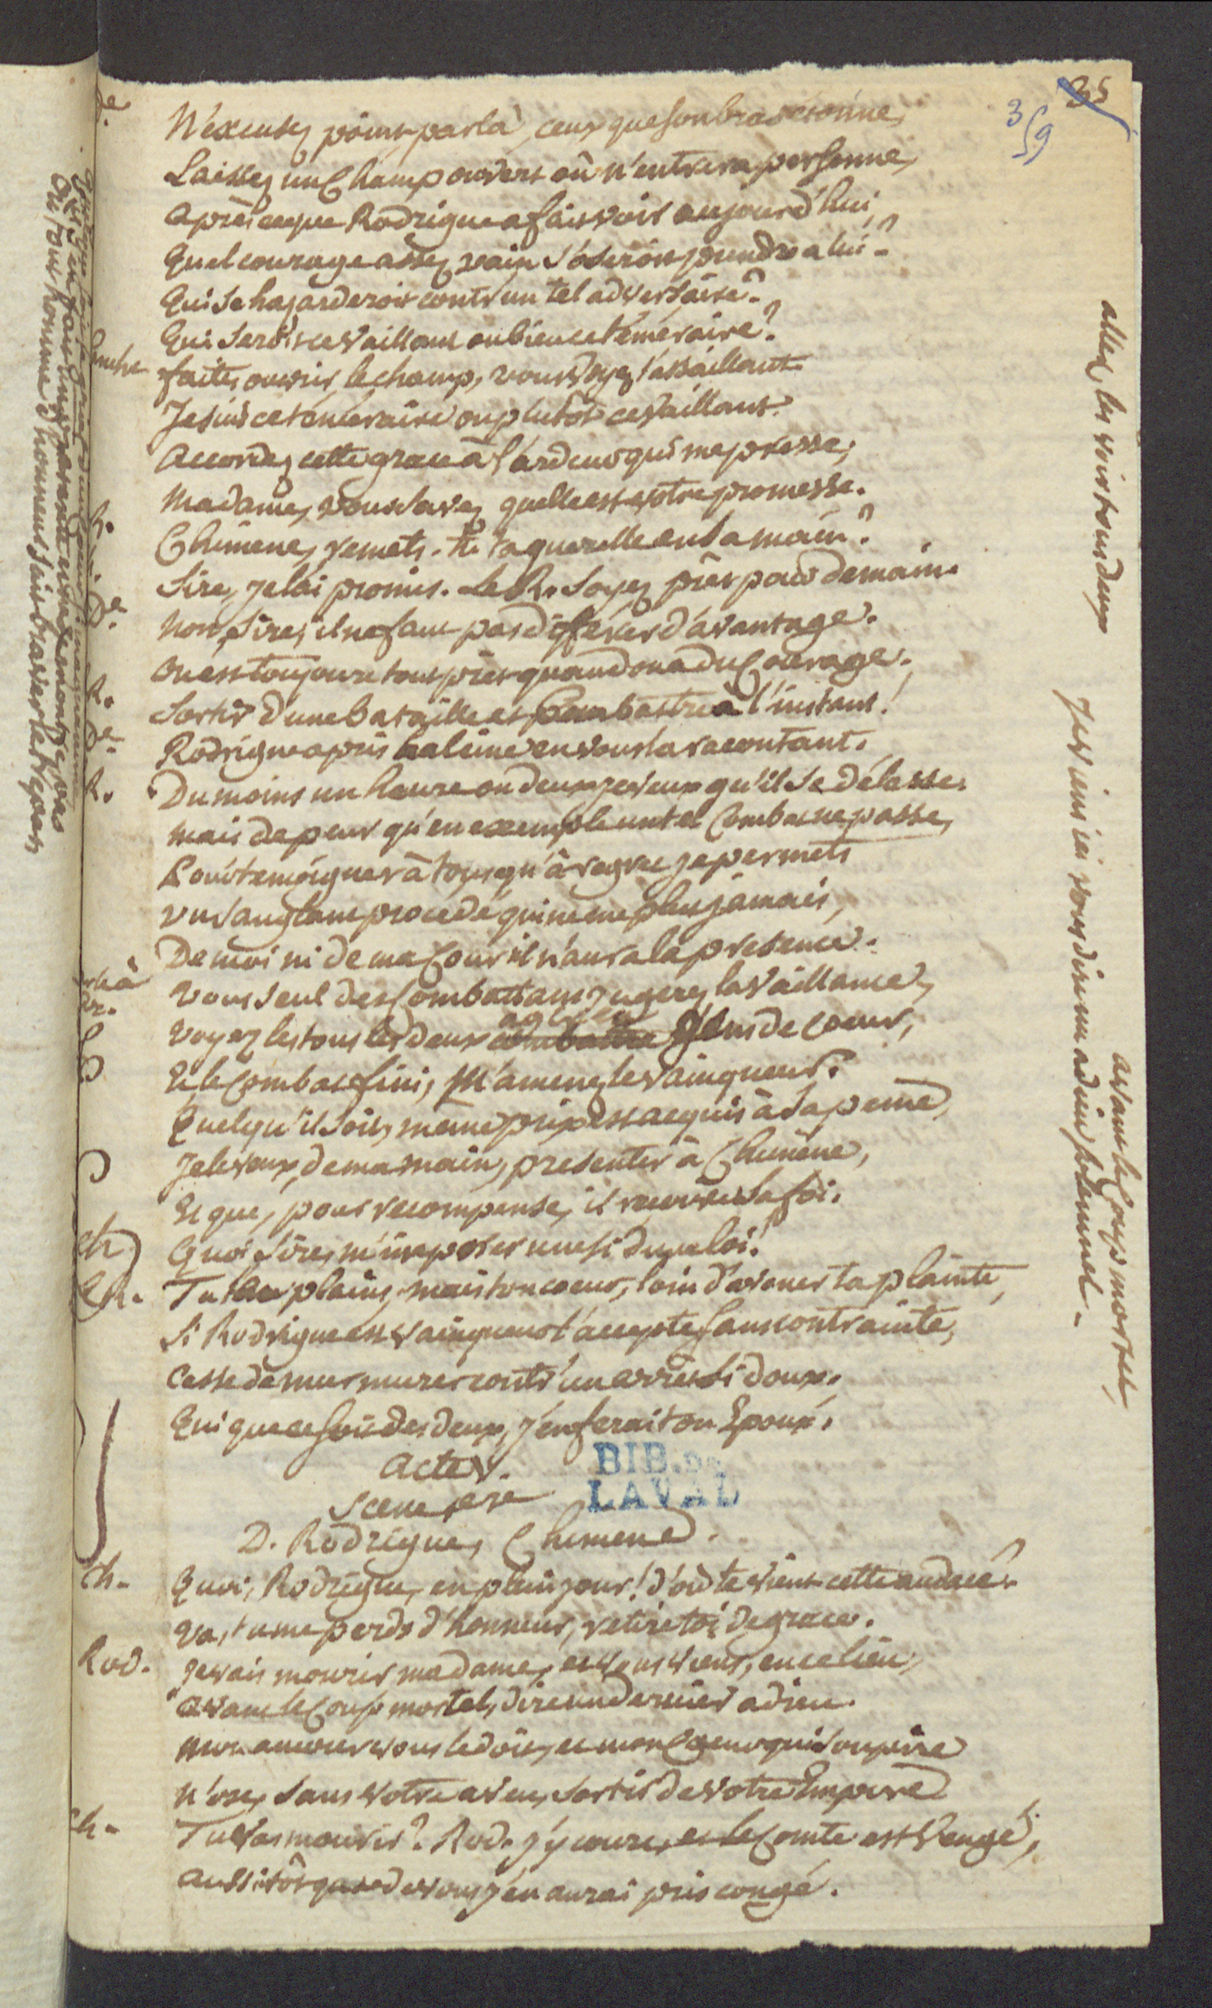 35
359
De N'excusez point par là, ceux que son bras etonne,
Laissez un Champ ouvert où n'entrera personne,
après ce que Rodrigue a fait voir aujourd'hui,
quel courage assez vain s'oseroit prendre a lui?
qui se hazarderoit contr'un tel adversaire?
qui seroit ce vaillant ou bien ce téméraire?
Sanche faites ouvrir le champ, vous voyez l'assaillant
Je suis ce téméraire ou plutôt ce vaillant.
accordez cette grace à l'ardeur qui me presse,
madame, vous savez quelle est votre promesse.
R. Chimene, remets-tu ta querelle en sa main?
Sire, je l'ai promis. Le R. Soyez prêt pour demain.
De non, Sire, il ne faut pas différer d'avantage.
on est toujours tout prêt quand on a du Courage.
R. Sortir d'une bataille et Combattre à l'instant!
De Rodrigue a pris haleine en vous la racontant.
R. Du moins un heure ou deux je veux qu'il se délasse.
mais de peur qu'en exemple un tel Combat ne passe,
Pour témoigner à tous qu'à regret je permets
un sanglant procedé qui ne me plut jamais,
De moi ni de ma Cour il n'aura la presence.
Vous seul des Combattans jugerez la vaillance,
Voyez les tous les deux combattre gens de coeur,
Et le Combat fini, m'amenez le vainqueur.
Quel qu'il soit, même prix est acquis à sa peine,
Je le veux, de ma main, presenter à Chimène,
Et que, pour recompense, il reçoive sa foi.
ch Quoi Sire, m'imposer une si dure loi!
Tu t'en plains, mais ton coeur, loin d'avouer ta plainte,
Si Rodrigue est vainqueur l'accepte sans contrainte,
Cesse de murmurer contr'un arrêt si doux.
Qui que ce soit des deux, j'en ferai ton Epoux.
acte V.
Scene 1ere
D. Rodrigue, Chimene.
BIB. DE
LAVAL
ch. Quoi, Rodrigue, en plein jour! d'où te vient cette audace?
Va, tu me perds d'honneur, retire toi de grace.
Rod. Je vais mourir madame, et vous viens, en ce lieu,
avant le Coup mortel, dire un dernier adieu.
mon amour vous le doit, et mon Coeur qui soupire
n'ose, sans votre aveu, sortir de votre Empire
ch. Tu vas mourir? Rod. j'y cours, et le Comte est vengé,
aussitôt que de vous j'en aurai pris congé.
allez les voir tous deux
Je viens ici vous dire un adieu solennel.
avant le Coup mortel,